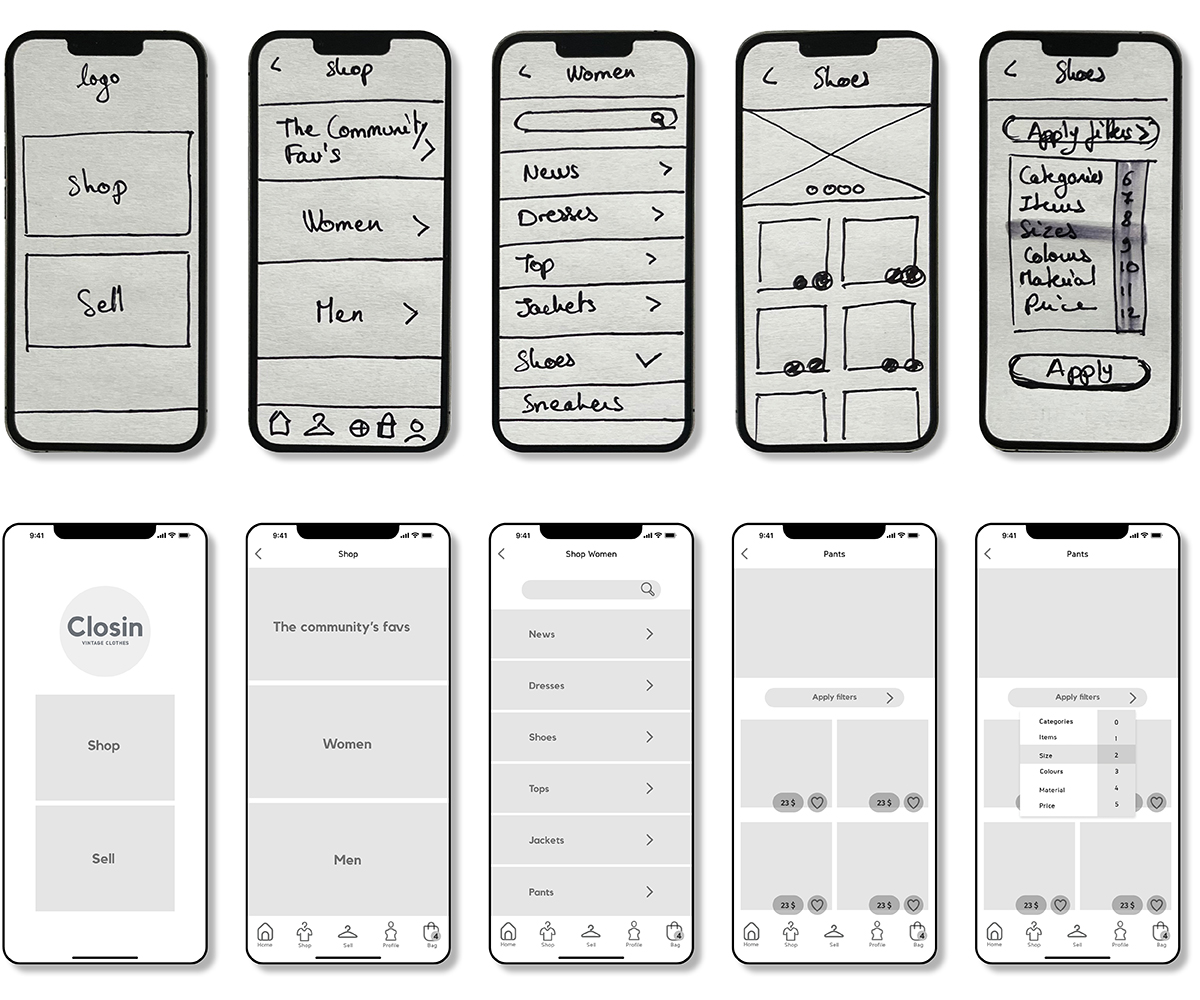 logo
Shop
Sell
Shop
The Community
Fav's
Women
Men
Women
News
Dresses
Top
Jackets
Shoes
Sneakers
Shoes
Shoes
Apply filters
Categories
Items
Sizes
Colours
Material
Price
6
7
8
9
10
11
12
Apply
9:41
Closin
VINTAGE CLOTHES
Shop
Sell
9:41
Shop
The community's favs
Women
Men
Home
Shop
Sell
Profile
4
Bag
9:41
Shop Women
News
Dresses
Shoes
Tops
Jackets
Pants
Home
Shop
Sell
Profile
4
Bag
9:41
Pants
Apply filters
23 $
23 $
23 $
23 $
Home
Shop
Sell
Profile
4
Bag
9:41
Pants
Apply filters
Categories 0
Items 1
Size 2
Colours 3
Material 4
Price 5
23 $
23 $
Home
Shop
Sell
Profile
4
Bag